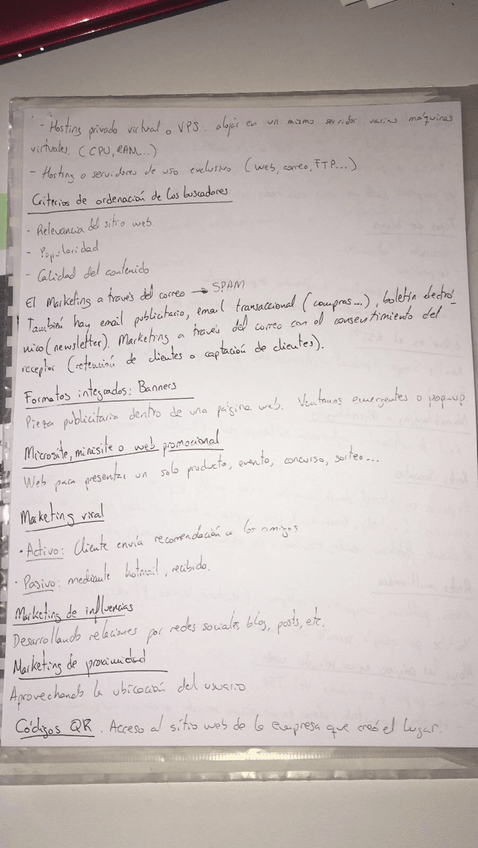 - Hosting privado virtual o VPS. alojar en un mismo servidor varias máquinas
virtuales (CPU, RAM...)
- Hosting o servidores de uso exclusivo (web, correo, FTP...)
Criterios de ordenación de los buscadores
- Relevancia del sitio web
- Popularidad
- Calidad del contenido
El Marketing a través del correo → SPAM
También hay email publicitario, email transaccional (compras...), boletín electró-
nico (newsletter). Marketing a través del correo con el consentimiento del
receptor (retención de clientes o captación de clientes).
Formatos integrados: Banners
Pieza publicitaria dentro de una página web. Ventanas emergentes o pop-up
Microsite, minisite o web promocional
Web para presentar un solo producto, evento, concurso, sorteo...
Marketing viral
• Activo: Cliente envía recomendación a los amigos
• Pasivo: mediante hotmail, recibido.
Marketing de influencias
Desarrollando relaciones por redes sociales blog, posts, etc.
Marketing de proximidad
Aprovechando la ubicación del usuario
Códigos QR. Acceso al sitio web de la empresa que creó el lugar.